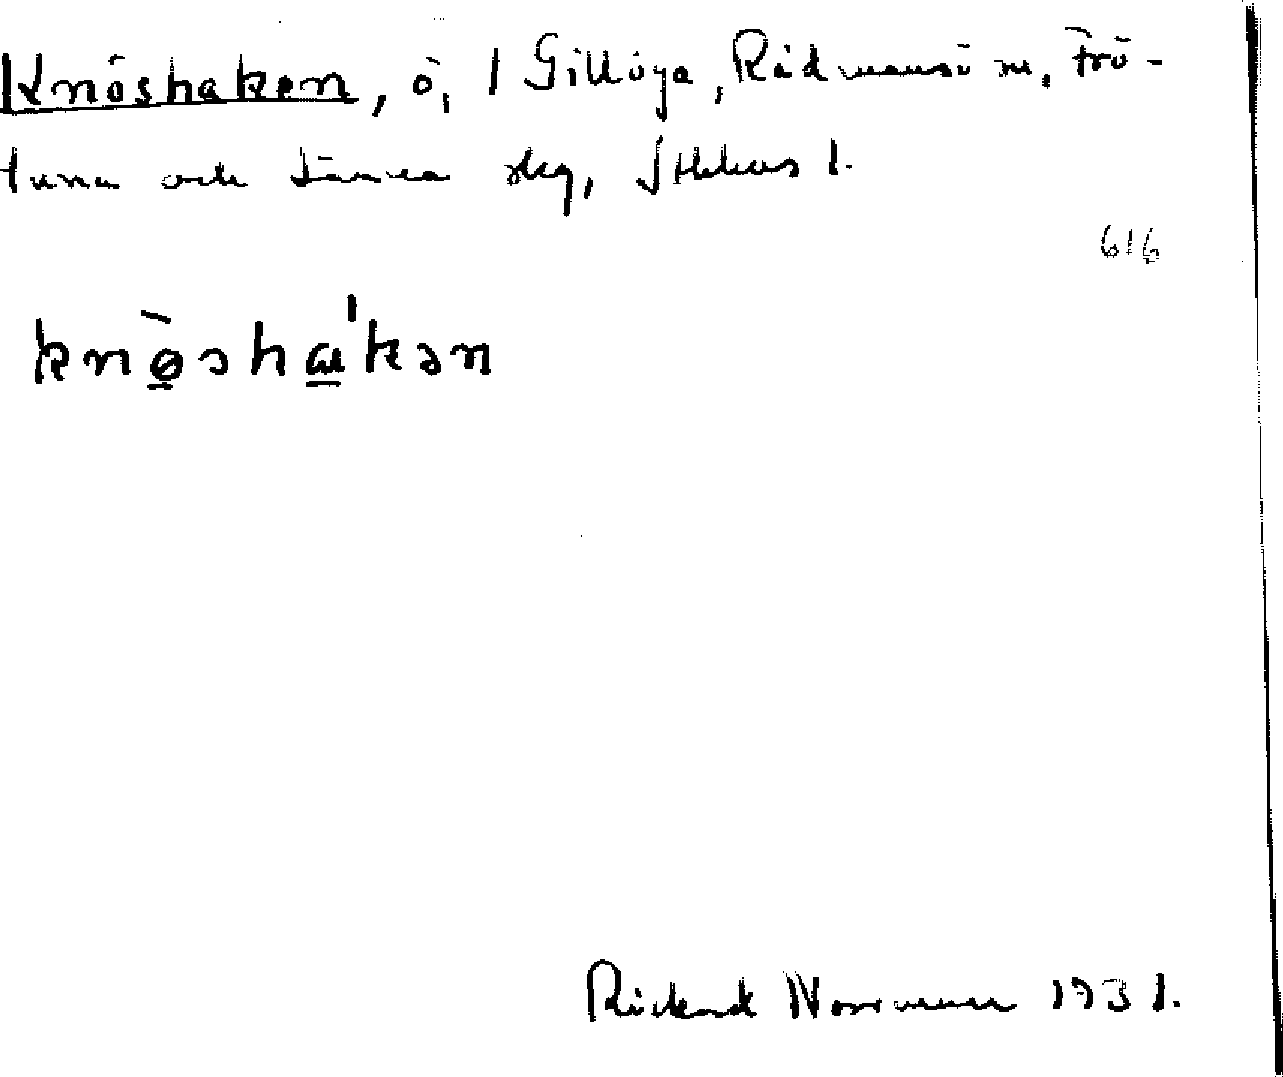 Knöshaken, ö, 1 Gillöga, Rådmansö sn, Frö-
tuna och Länna skg, Sthlms l.
616
knø̀shɑ'kən
Rickard Norrman 1931.